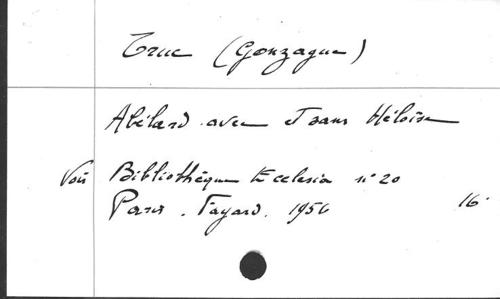 Truc (Gonzague)
Abélard avec et sans Héloïse
Voir Bibliothèque Ecclesia n° 20
Paris. Fayard. 1956 16°